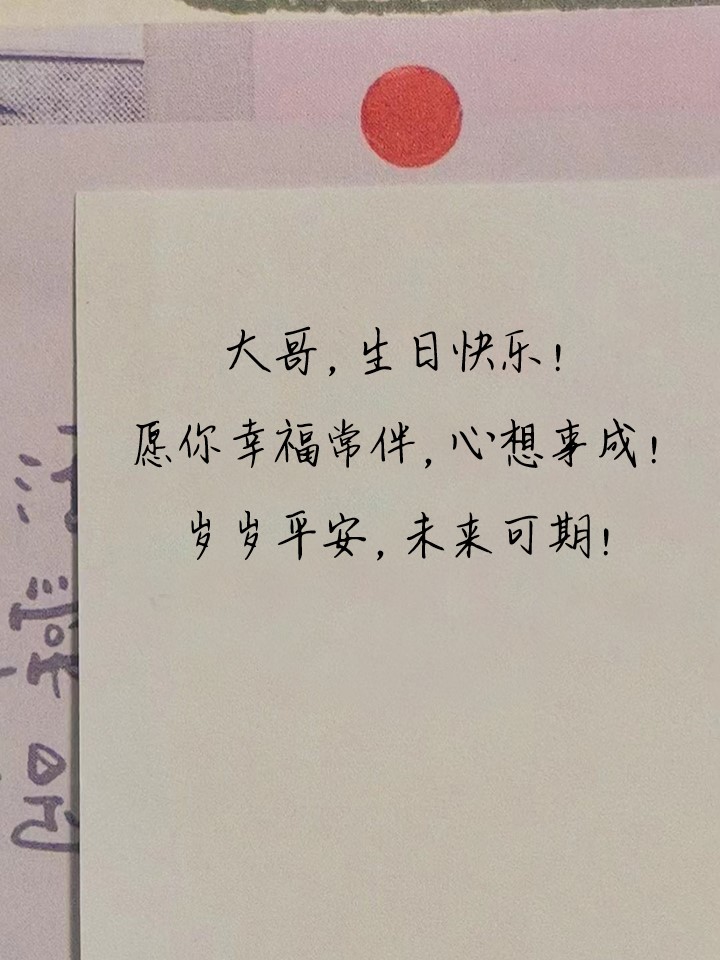 大哥，生日快乐！
愿你幸福常伴，心想事成！
岁岁平安，未来可期！